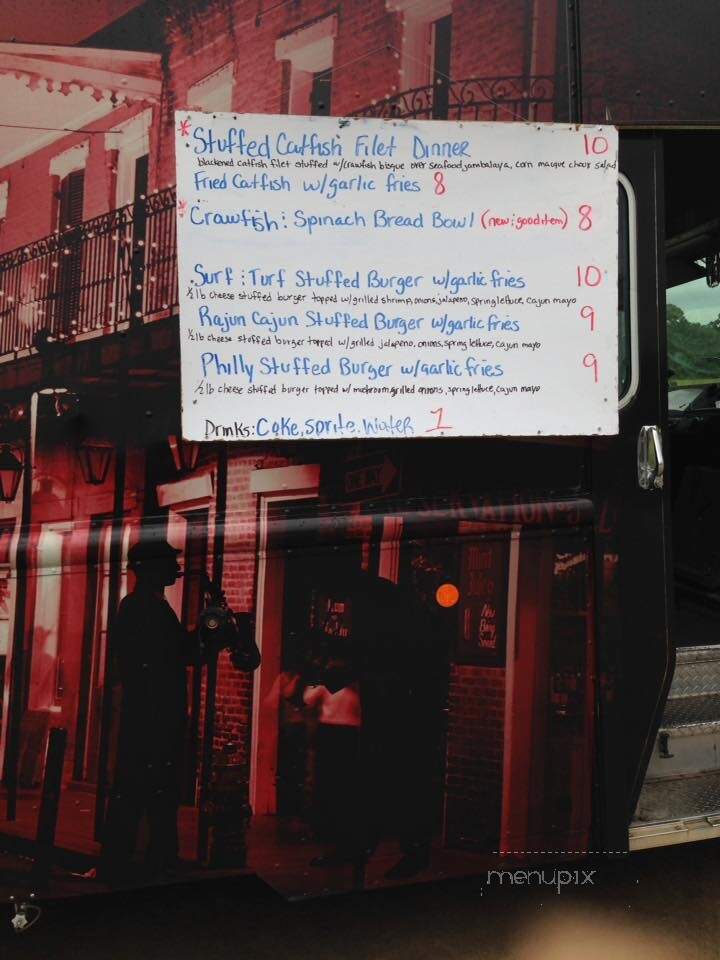 * Stuffed Catfish Filet Dinner 10
blackened catfish filet stuffed w/crawfish bisque over seafood jambalaya, corn maque choux salad
Fried Catfish w/garlic fries 8
* Crawfish: Spinach Bread Bowl (new: good item) 8
Surf: Turf Stuffed Burger w/garlic fries 10
½ lb cheese stuffed burger topped w/grilled shrimp, onions, jalapeno, spring lettuce, cajun mayo
Rajun Cajun Stuffed Burger w/garlic fries 9
½ lb cheese stuffed burger topped w/grilled jalapeno, onions, spring lettuce, cajun mayo
Philly Stuffed Burger w/garlic fries 9
½ lb cheese stuffed burger topped w/ mushroom, grilled onions, spring lettuce, cajun mayo
Drinks: Coke, Sprite, Water 1
menupix